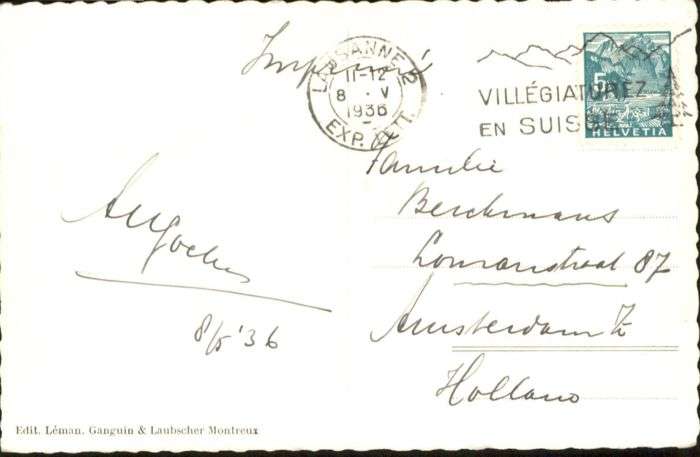 Imprimé
LAUSANNE 2
11-12
8 . V
1936
EXP. LETT.
VILLÉGIATUREZ
EN SUISSE
5
HELVETIA
Familie
Berckmans
Lomanstraat 87
Amsterdam Z
Holland
8/5 '36
Edit. Léman. Ganguin & Laubscher Montreux